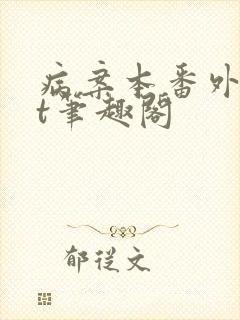 病案本番外
t笔趣阁
郁從文